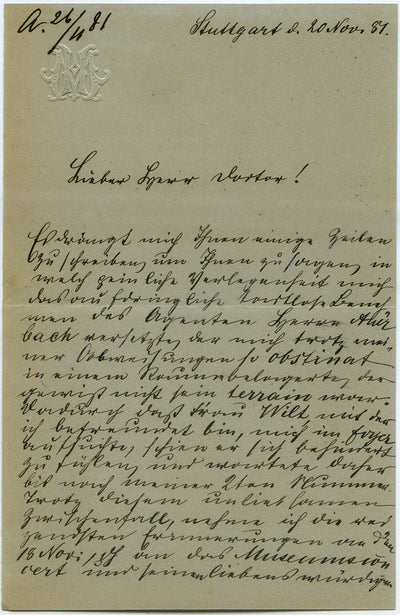 A. 26/11 81
Stuttgart d. 20 Nov. 81.
Lieber Herr Doctor!
Es drängt mich Ihnen einige Zeilen
zu schreiben, um Ihnen zu sagen, in
welch peinliche Verlegenheit mich
das aufdringliche, tactlose Beneh
men des Agenten Herrn
bach versetzte, der mich trotz mei
ner Abweisungen so obstinat
in einem Raume belagerte, der
gewiß nicht sein terrain war.
Dadurch daß Frau Wilt mit der
ich befreundet bin, mich im foyer
aufsuchte, schien er sich behindert
zu fühlen, und wartete daher
bis nach meiner 2ten Nummer.
Trotz diesem unliebsamen
Zwischenfall, nehme ich die rei
zendsten Erinnerungen an den
18 Nov:, an das Museumscon
cert und seinen liebenswürdigen